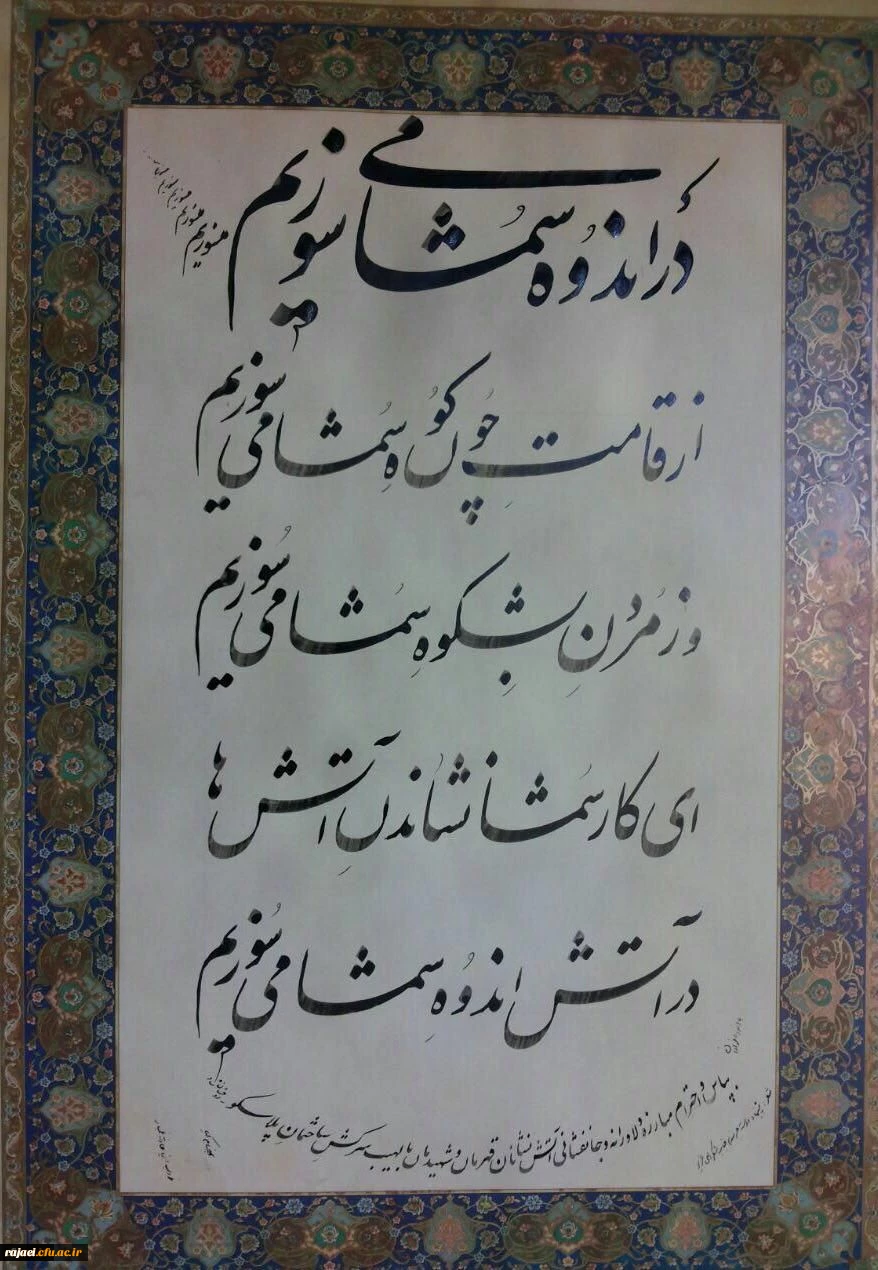 در اندوه شما می سوزیم
می سوزیم
از قامتِ چون کوهِ شما می سوزیم
وز مردنِ بشکوهِ شما می سوزیم
ای کار شما نشاندنِ آتش ها
در آتش اندوهِ شما می سوزیم
بپاس و احترام مبارزه دلاورانه و جانفشانی آتش نشانان قهرمان و شهیدمان با لهیب سرکش ساختمان پلاسکو
rajaei.cfu.ac.ir